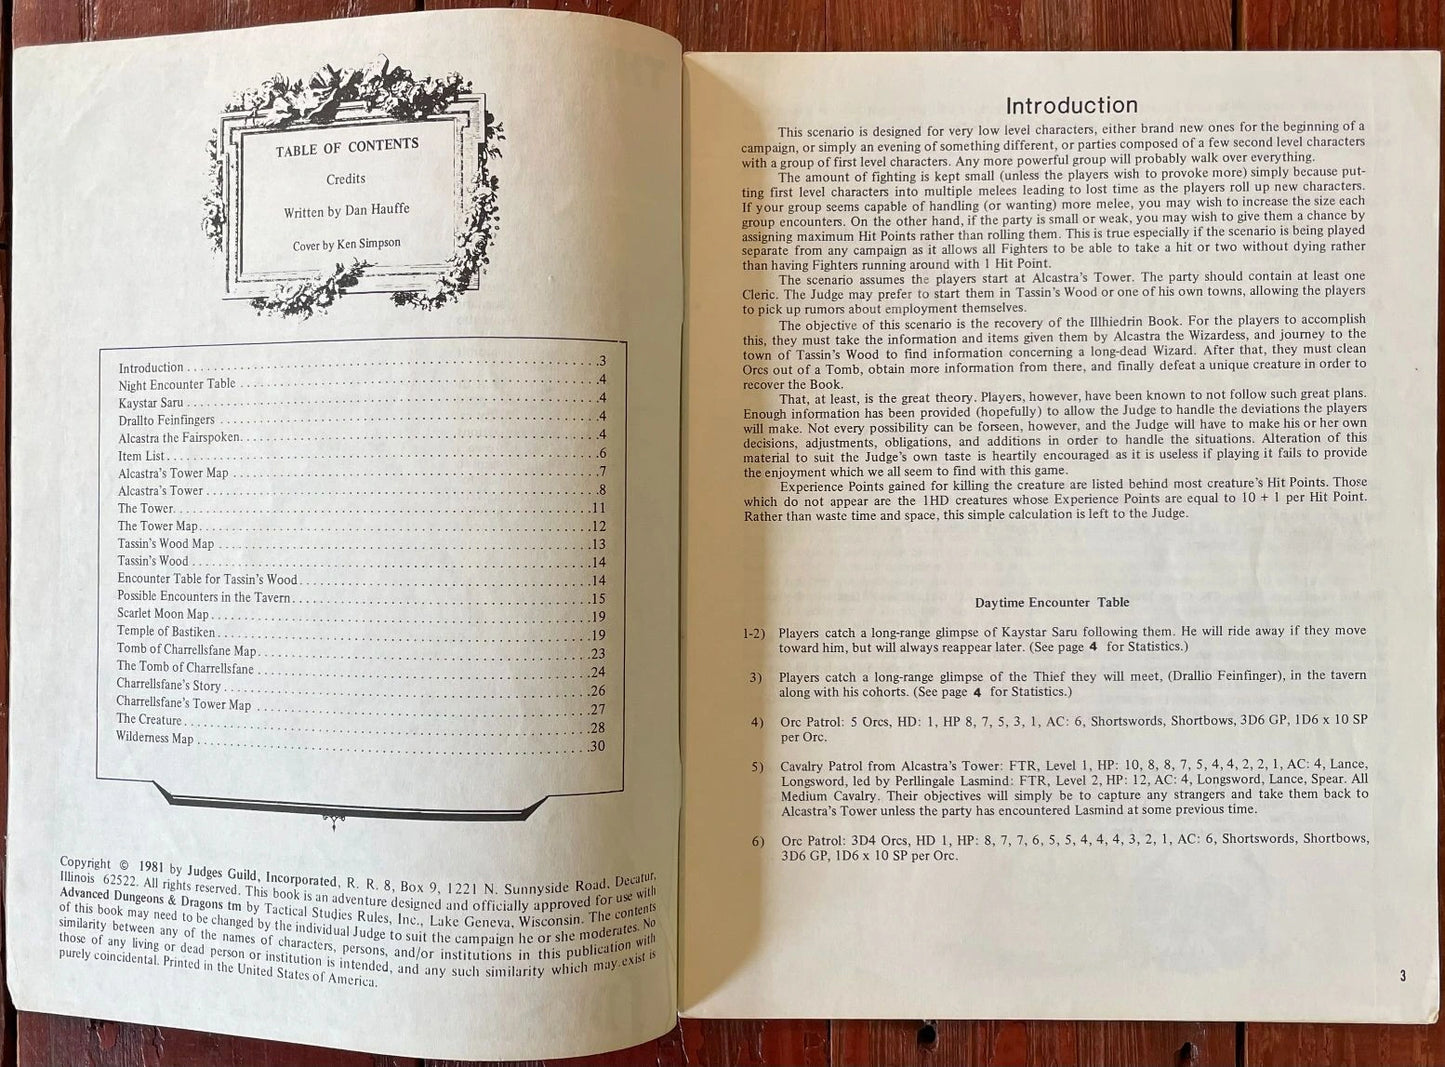 TABLE OF CONTENTS
Credits
Written by Dan Hauffe
Cover by Ken Simpson
Introduction . . . . . . . . . . . . . . . . . . . . . . . . . . . . .3
Night Encounter Table . . . . . . . . . . . . . . . . . . . . . . . . .4
Kaystar Saru . . . . . . . . . . . . . . . . . . . . . . . . . . . . .4
Drallto Feinfingers . . . . . . . . . . . . . . . . . . . . . . . . . .4
Alcastra the Fairspoken. . . . . . . . . . . . . . . . . . . . . . . . .4
Item List . . . . . . . . . . . . . . . . . . . . . . . . . . . . . . .6
Alcastra's Tower Map . . . . . . . . . . . . . . . . . . . . . . . . . .7
Alcastra's Tower . . . . . . . . . . . . . . . . . . . . . . . . . . . .8
The Tower. . . . . . . . . . . . . . . . . . . . . . . . . . . . . . .11
The Tower Map. . . . . . . . . . . . . . . . . . . . . . . . . . . . .12
Tassin's Wood Map . . . . . . . . . . . . . . . . . . . . . . . . . . .13
Tassin's Wood . . . . . . . . . . . . . . . . . . . . . . . . . . . . .14
Encounter Table for Tassin's Wood. . . . . . . . . . . . . . . . . . . .14
Possible Encounters in the Tavern. . . . . . . . . . . . . . . . . . . .15
Scarlet Moon Map. . . . . . . . . . . . . . . . . . . . . . . . . . . .19
Temple of Bastiken. . . . . . . . . . . . . . . . . . . . . . . . . . .19
Tomb of Charrellsfane Map. . . . . . . . . . . . . . . . . . . . . . . .23
The Tomb of Charrellsfane . . . . . . . . . . . . . . . . . . . . . . .24
Charrellsfane's Story . . . . . . . . . . . . . . . . . . . . . . . . .26
Charrellsfane's Tower Map . . . . . . . . . . . . . . . . . . . . . . .27
The Creature. . . . . . . . . . . . . . . . . . . . . . . . . . . . . .28
Wilderness Map . . . . . . . . . . . . . . . . . . . . . . . . . . . . .30
Copyright © 1981 by Judges Guild, Incorporated, R. R. 8, Box 9, 1221 N. Sunnyside Road, Decatur,
Illinois 62522. All rights reserved. This book is an adventure designed and officially approved for use with
Advanced Dungeons & Dragons tm by Tactical Studies Rules, Inc., Lake Geneva, Wisconsin. The contents
of this book may need to be changed by the individual Judge to suit the campaign he or she moderates. No
similarity between any of the names of characters, persons, and/or institutions in this publication with
those of any living or dead person or institution is intended, and any such similarity which may exist is
purely coincidental. Printed in the United States of America.
Introduction
This scenario is designed for very low level characters, either brand new ones for the beginning of a
campaign, or simply an evening of something different, or parties composed of a few second level characters
with a group of first level characters. Any more powerful group will probably walk over everything.
The amount of fighting is kept small (unless the players wish to provoke more) simply because put-
ting first level characters into multiple melees leading to lost time as the players roll up new characters.
If your group seems capable of handling (or wanting) more melee, you may wish to increase the size each
group encounters. On the other hand, if the party is small or weak, you may wish to give them a chance by
assigning maximum Hit Points rather than rolling them. This is true especially if the scenario is being played
separate from any campaign as it allows all Fighters to be able to take a hit or two without dying rather
than having Fighters running around with 1 Hit Point.
The scenario assumes the players start at Alcastra's Tower. The party should contain at least one
Cleric. The Judge may prefer to start them in Tassin's Wood or one of his own towns, allowing the players
to pick up rumors about employment themselves.
The objective of this scenario is the recovery of the Illhiedrin Book. For the players to accomplish
this, they must take the information and items given them by Alcastra the Wizardess, and journey to the
town of Tassin's Wood to find information concerning a long-dead Wizard. After that, they must clean
Orcs out of a Tomb, obtain more information from there, and finally defeat a unique creature in order to
recover the Book.
That, at least, is the great theory. Players, however, have been known to not follow such great plans.
Enough information has been provided (hopefully) to allow the Judge to handle the deviations the players
will make. Not every possibility can be forseen, however, and the Judge will have to make his or her own
decisions, adjustments, obligations, and additions in order to handle the situations. Alteration of this
material to suit the Judge's own taste is heartily encouraged as it is useless if playing it fails to provide
the enjoyment which we all seem to find with this game.
Experience Points gained for killing the creature are listed behind most creature's Hit Points. Those
which do not appear are the 1HD creatures whose Experience Points are equal to 10 + 1 per Hit Point.
Rather than waste time and space, this simple calculation is left to the Judge.
Daytime Encounter Table
1-2) Players catch a long-range glimpse of Kaystar Saru following them. He will ride away if they move
toward him, but will always reappear later. (See page 4 for Statistics.)
3) Players catch a long-range glimpse of the Thief they will meet, (Drallio Feinfinger), in the tavern
along with his cohorts. (See page 4 for Statistics.)
4) Orc Patrol: 5 Orcs, HD: 1, HP 8, 7, 5, 3, 1, AC: 6, Shortswords, Shortbows, 3D6 GP, 1D6 x 10 SP
per Orc.
5) Cavalry Patrol from Alcastra's Tower: FTR, Level 1, HP: 10, 8, 8, 7, 5, 4, 4, 2, 2, 1, AC: 4, Lance,
Longsword, led by Perllingale Lasmind: FTR, Level 2, HP: 12, AC: 4, Longsword, Lance, Spear. All
Medium Cavalry. Their objectives will simply be to capture any strangers and take them back to
Alcastra's Tower unless the party has encountered Lasmind at some previous time.
6) Orc Patrol: 3D4 Orcs, HD 1, HP: 8, 7, 7, 6, 5, 5, 4, 4, 4, 3, 2, 1, AC: 6, Shortswords, Shortbows,
3D6 GP, 1D6 x 10 SP per Orc.
3